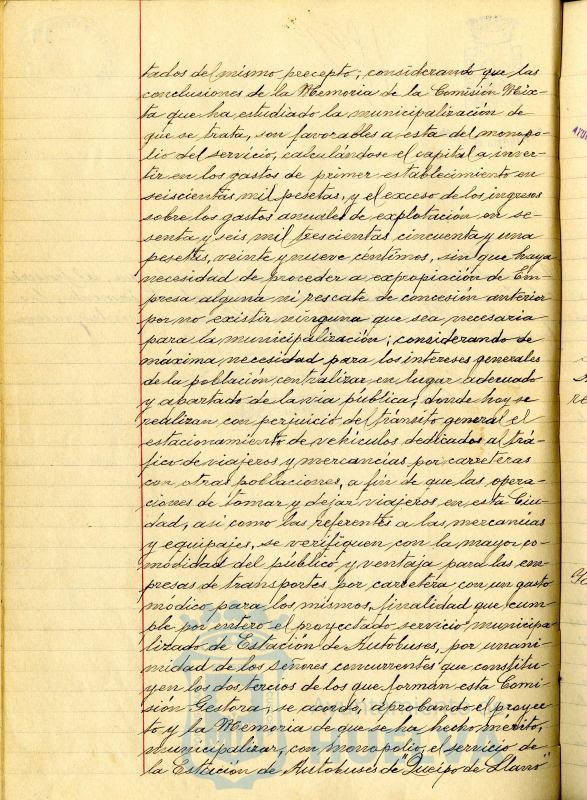 tados del mismo precepto; considerando que las
conclusiones de la Memoria de la Comisión Mix-
ta que ha estudiado la municipalización de
que se trata, son favorables a esta del monopo-
lio del servicio, calculándose el capital a inver-
tir en los gastos de primer establecimiento en
seiscientas mil pesetas, y el exceso de los ingresos
sobre los gastos anuales de explotación en se-
senta y seis mil trescientas cincuenta y una
pesetas, veinte y nueve centimos, sin que haya
necesidad de proceder a expropiación de Em-
presa alguna ni rescate de concesión anterior
por no existir ninguna que sea necesaria
para la municipalización; considerando de
máxima necesidad para los intereses generales
de la población centralizar en lugar adecuado
y apartado de la via pública, donde hoy se
realizan con perjuicio del tránsito general el
estacionamiento de vehículos dedicados al trá-
fico de viajeros y mercancías por carreteras
con otras poblaciones, a fin de que las opera-
ciones de tomar y dejar viajeros en esta Ciu-
dad, asi como las referentes a las mercancias
y equipajes, se verifiquen con la mayor co-
modidad del público y ventaja para las em-
presas de transportes por carretera con un gasto
módico para los mismos, finalidad que cum-
ple por entero el proyectado servicio municipa-
lizado de Estación de Autobuses, por unani-
midad de los señores concurrentes que constitu-
yen los dos tercios de los que forman esta Comi-
sión Gestora, se acordó, aprobando el proyec-
to y la Memoria de que se ha hecho mérito,
municipalizar, con monopolio, el servicio de
la Estación de Autobuses de "Queipo de Llano"
HUELVA